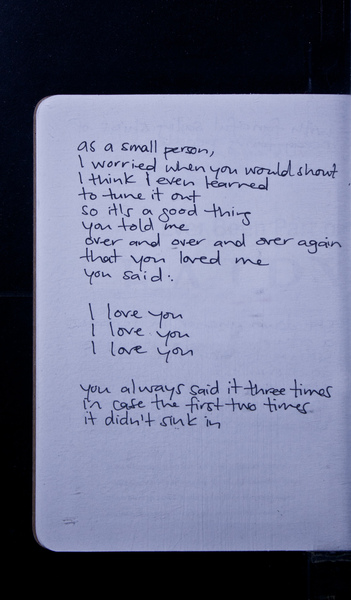 as a small person,
I worried when you would shout
I think I even learned
to tune it out
so it's a good thing
you told me
over and over and over again
that you loved me
you said:

I love you
I love you
I love you

you always said it three times
in case the first two times
it didn't sink in